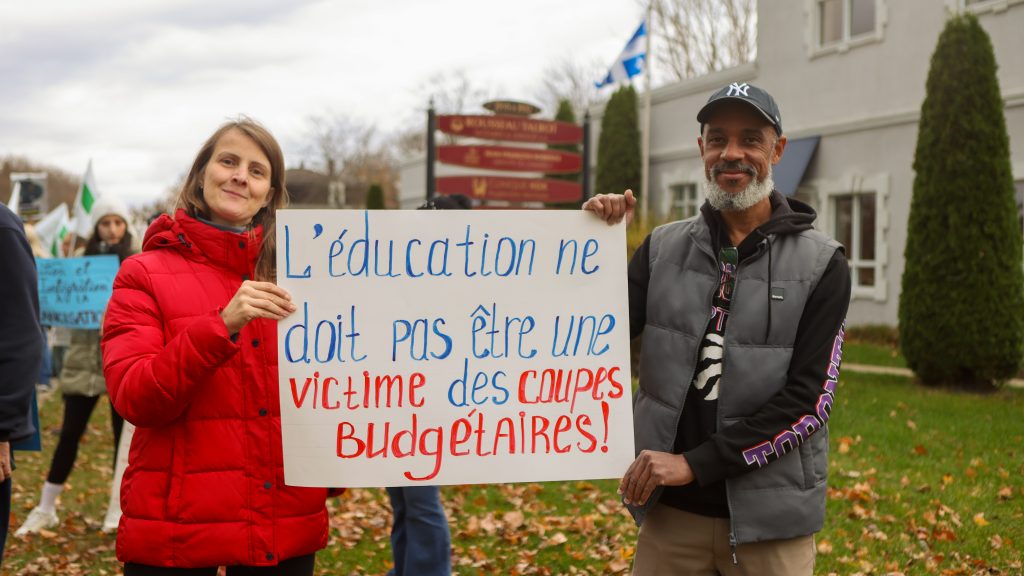 L'éducation ne
doit pas être une
victime des coupes
Budgétaires!
ROUSSEAU TALBOT
NY
TORO